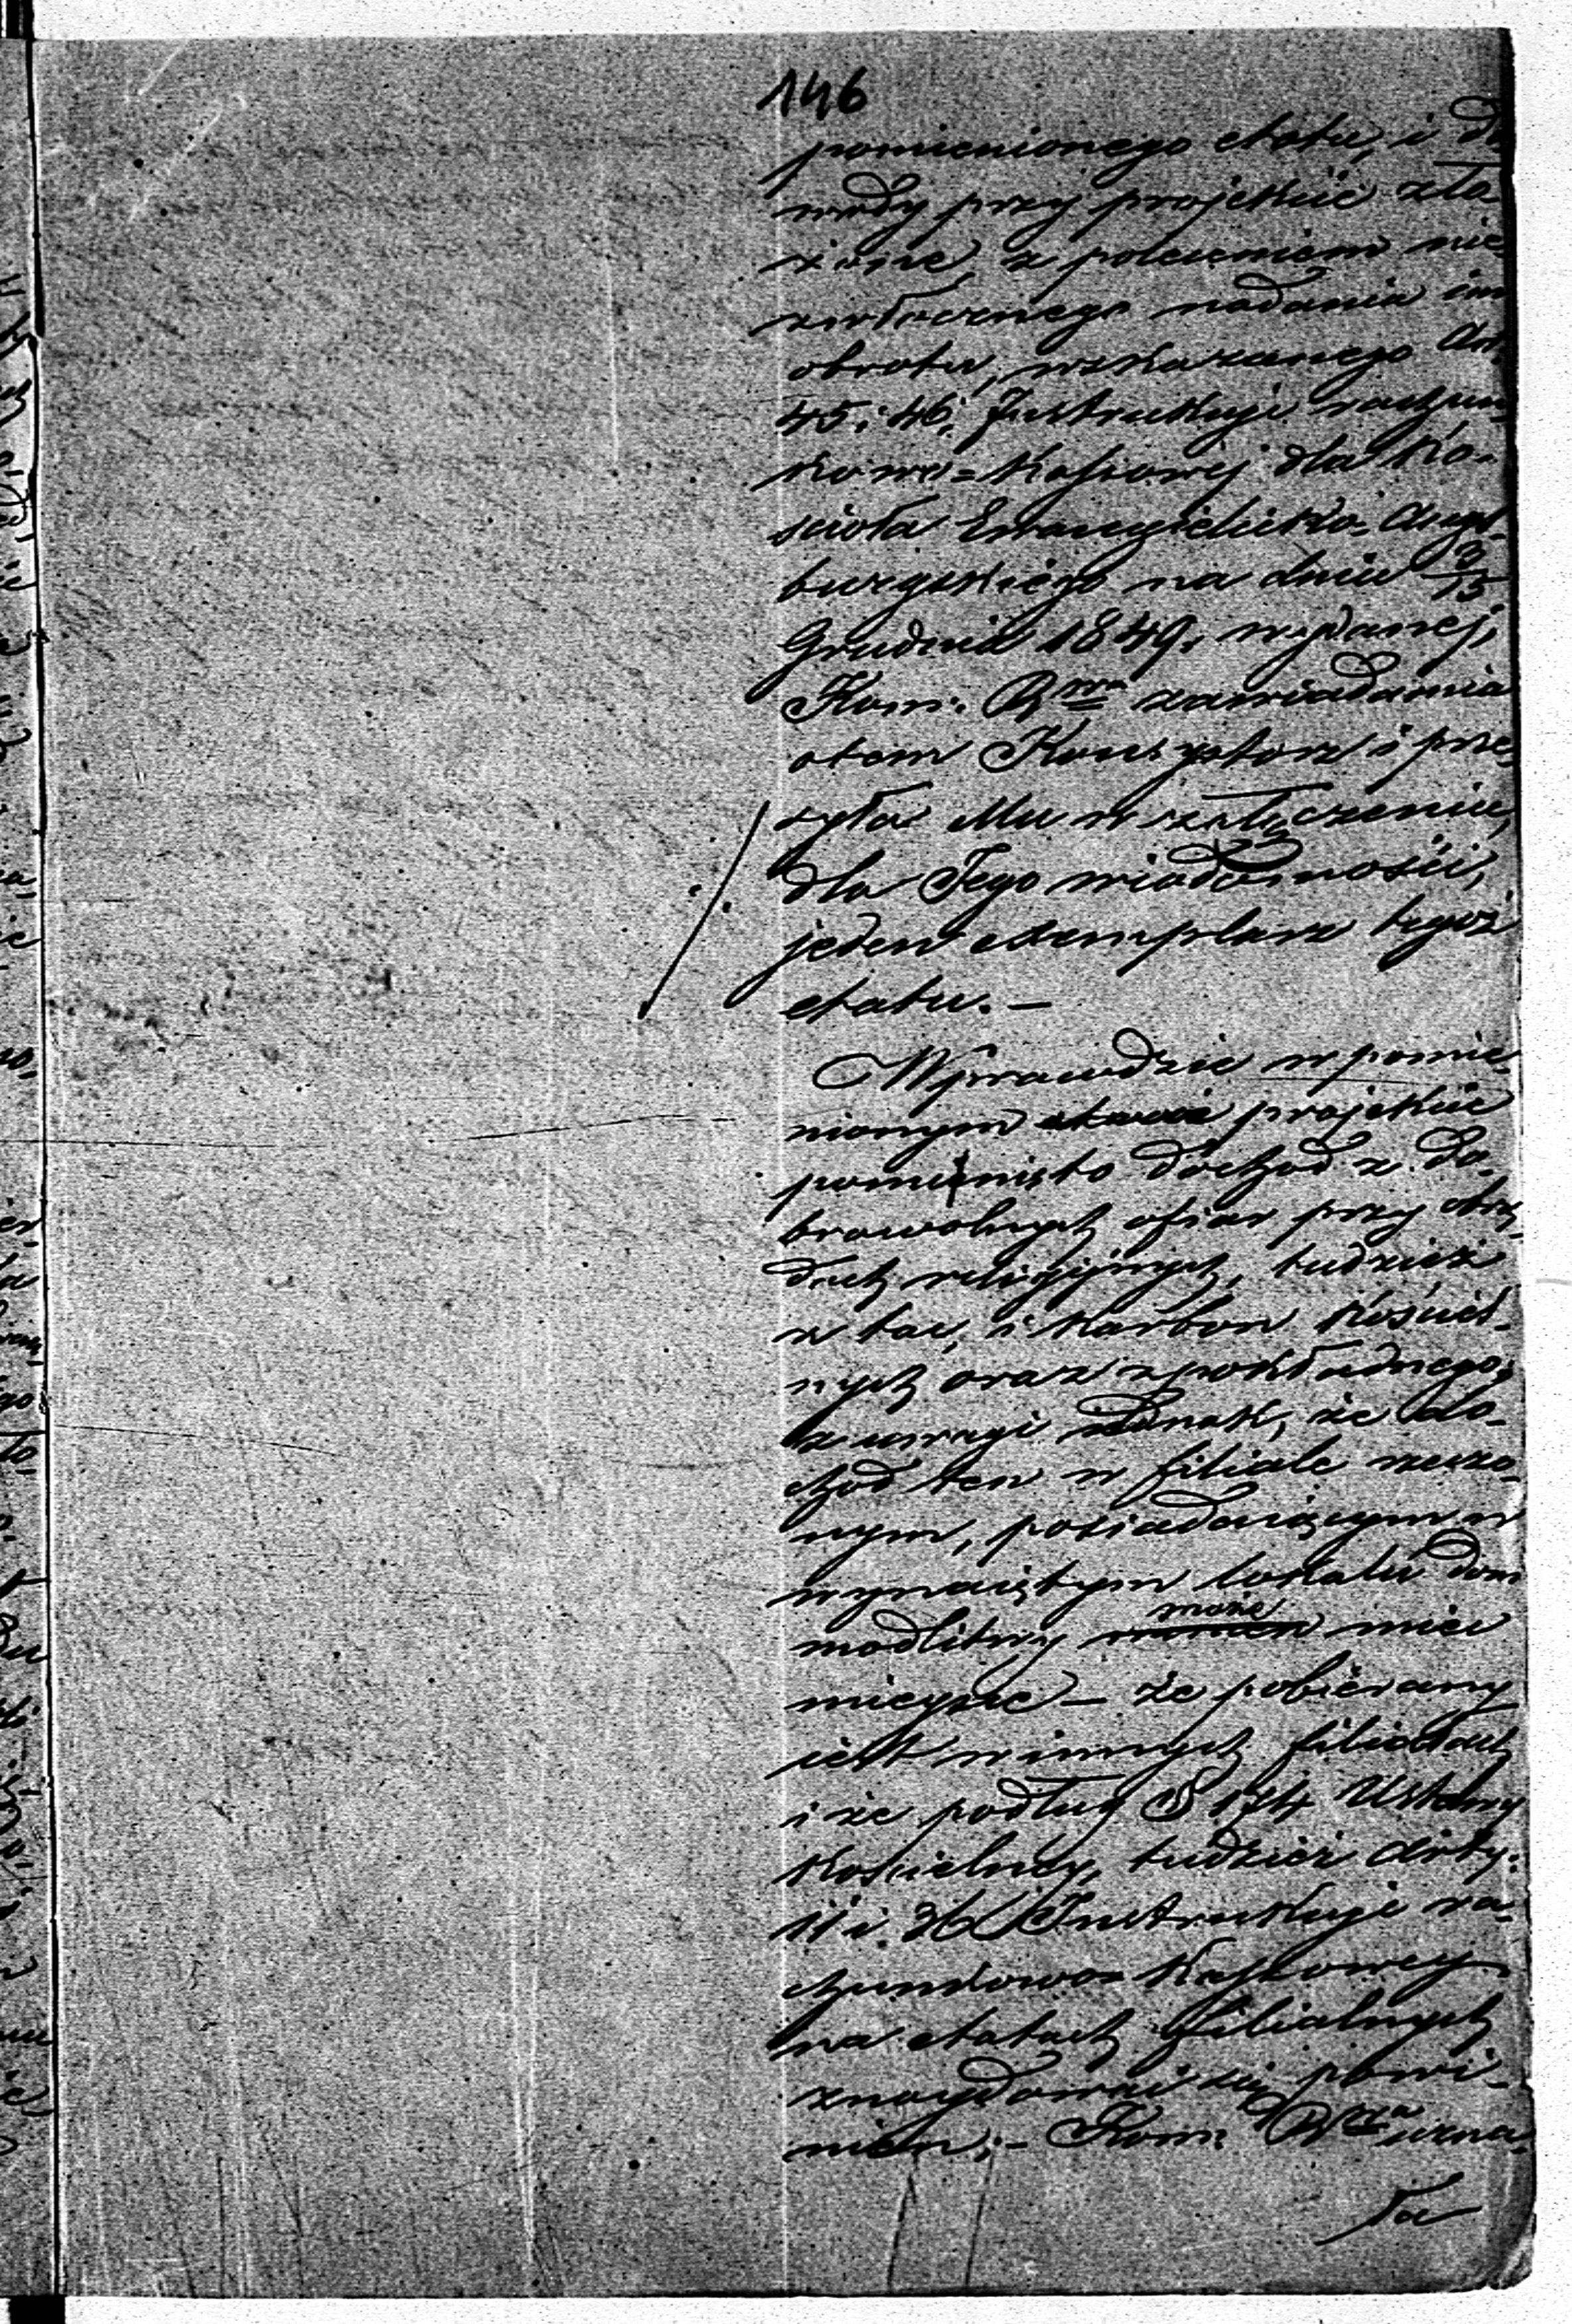 146
pomienionego etatu, i do
wody przy projekcie zło-
żone, z poleceniem nie
zwłocznego nadania im
obrotu, wskazanego Art.
45. i 46. Instrukcyi rachun
kowo=kassowej dla Ko-
ścioła Ewangielicko-Augs-
burgskiego na dniu 3/15
Grudnia 1849. wydanej,
Kom: Rwa zawiadamia
otem Konsystorz i prze
syła Mu w załączeniu,
dla Jego wiadomości,
jeden exemplarz tegoż
etatu. —
Wprawdzie w pomie-
nionym projekcie
pominięto dochod z do-
browolnych ofiar przy obrzę
dach religijnych, tudzież
z tac, i karbon kościel-
nych oraz z pokładnego,
z uwagi jednak, że do-
chod ten w filiale rzeczo-
nym, posiadającym w
wynajętym lokalu dom
modlitwy może mieć
mieysce — że pobierany
iest w innych filiałach
i że podług § 174 Ustawy
Kościelney, tudzież Arty:
11 i. 36 Instrukcyi ra-
chunkowo=Kassowey
na etatach filialnych
znaydować się powi-
nien; — Kom: Rwa uzna-
ła